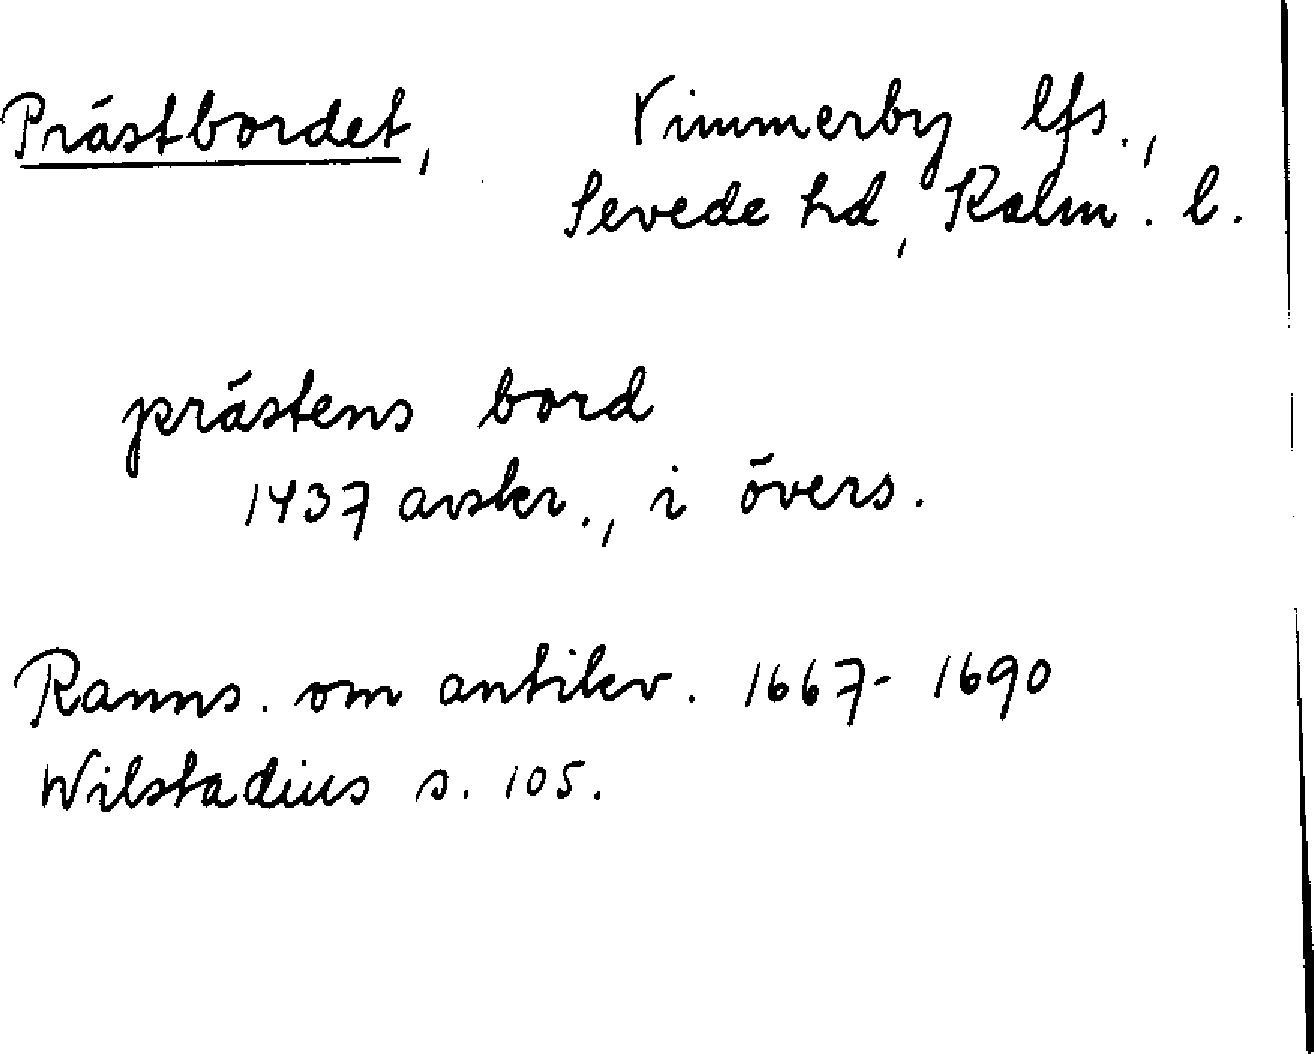 Prästbordet, Vimmerby lfs.,
Sevede hd, Kalm. l.
prästens bord
1437 avskr., i övers.
Ranns. om antikv. 1667-1690
Wilstadius s. 105.